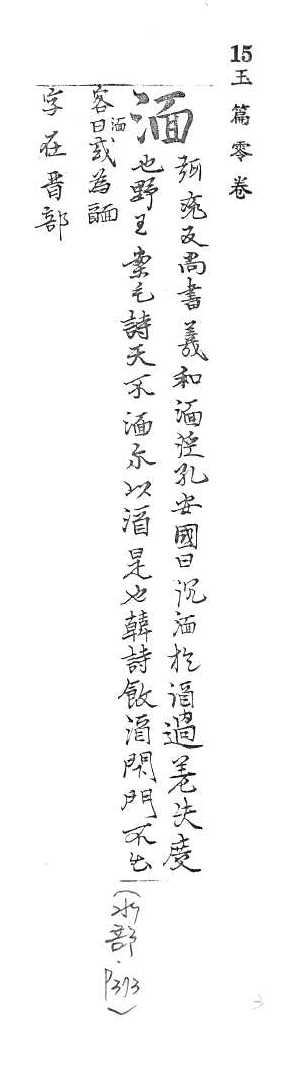 15 玉篇零卷
湎
弥兖反尚書羲和湎淫孔安國曰沉湎於酒過差失度
也野王案毛詩天不湎尓以酒是也韓詩飲酒閇門不出
客曰湎或為䤄
字在晋部
(水部·P373)